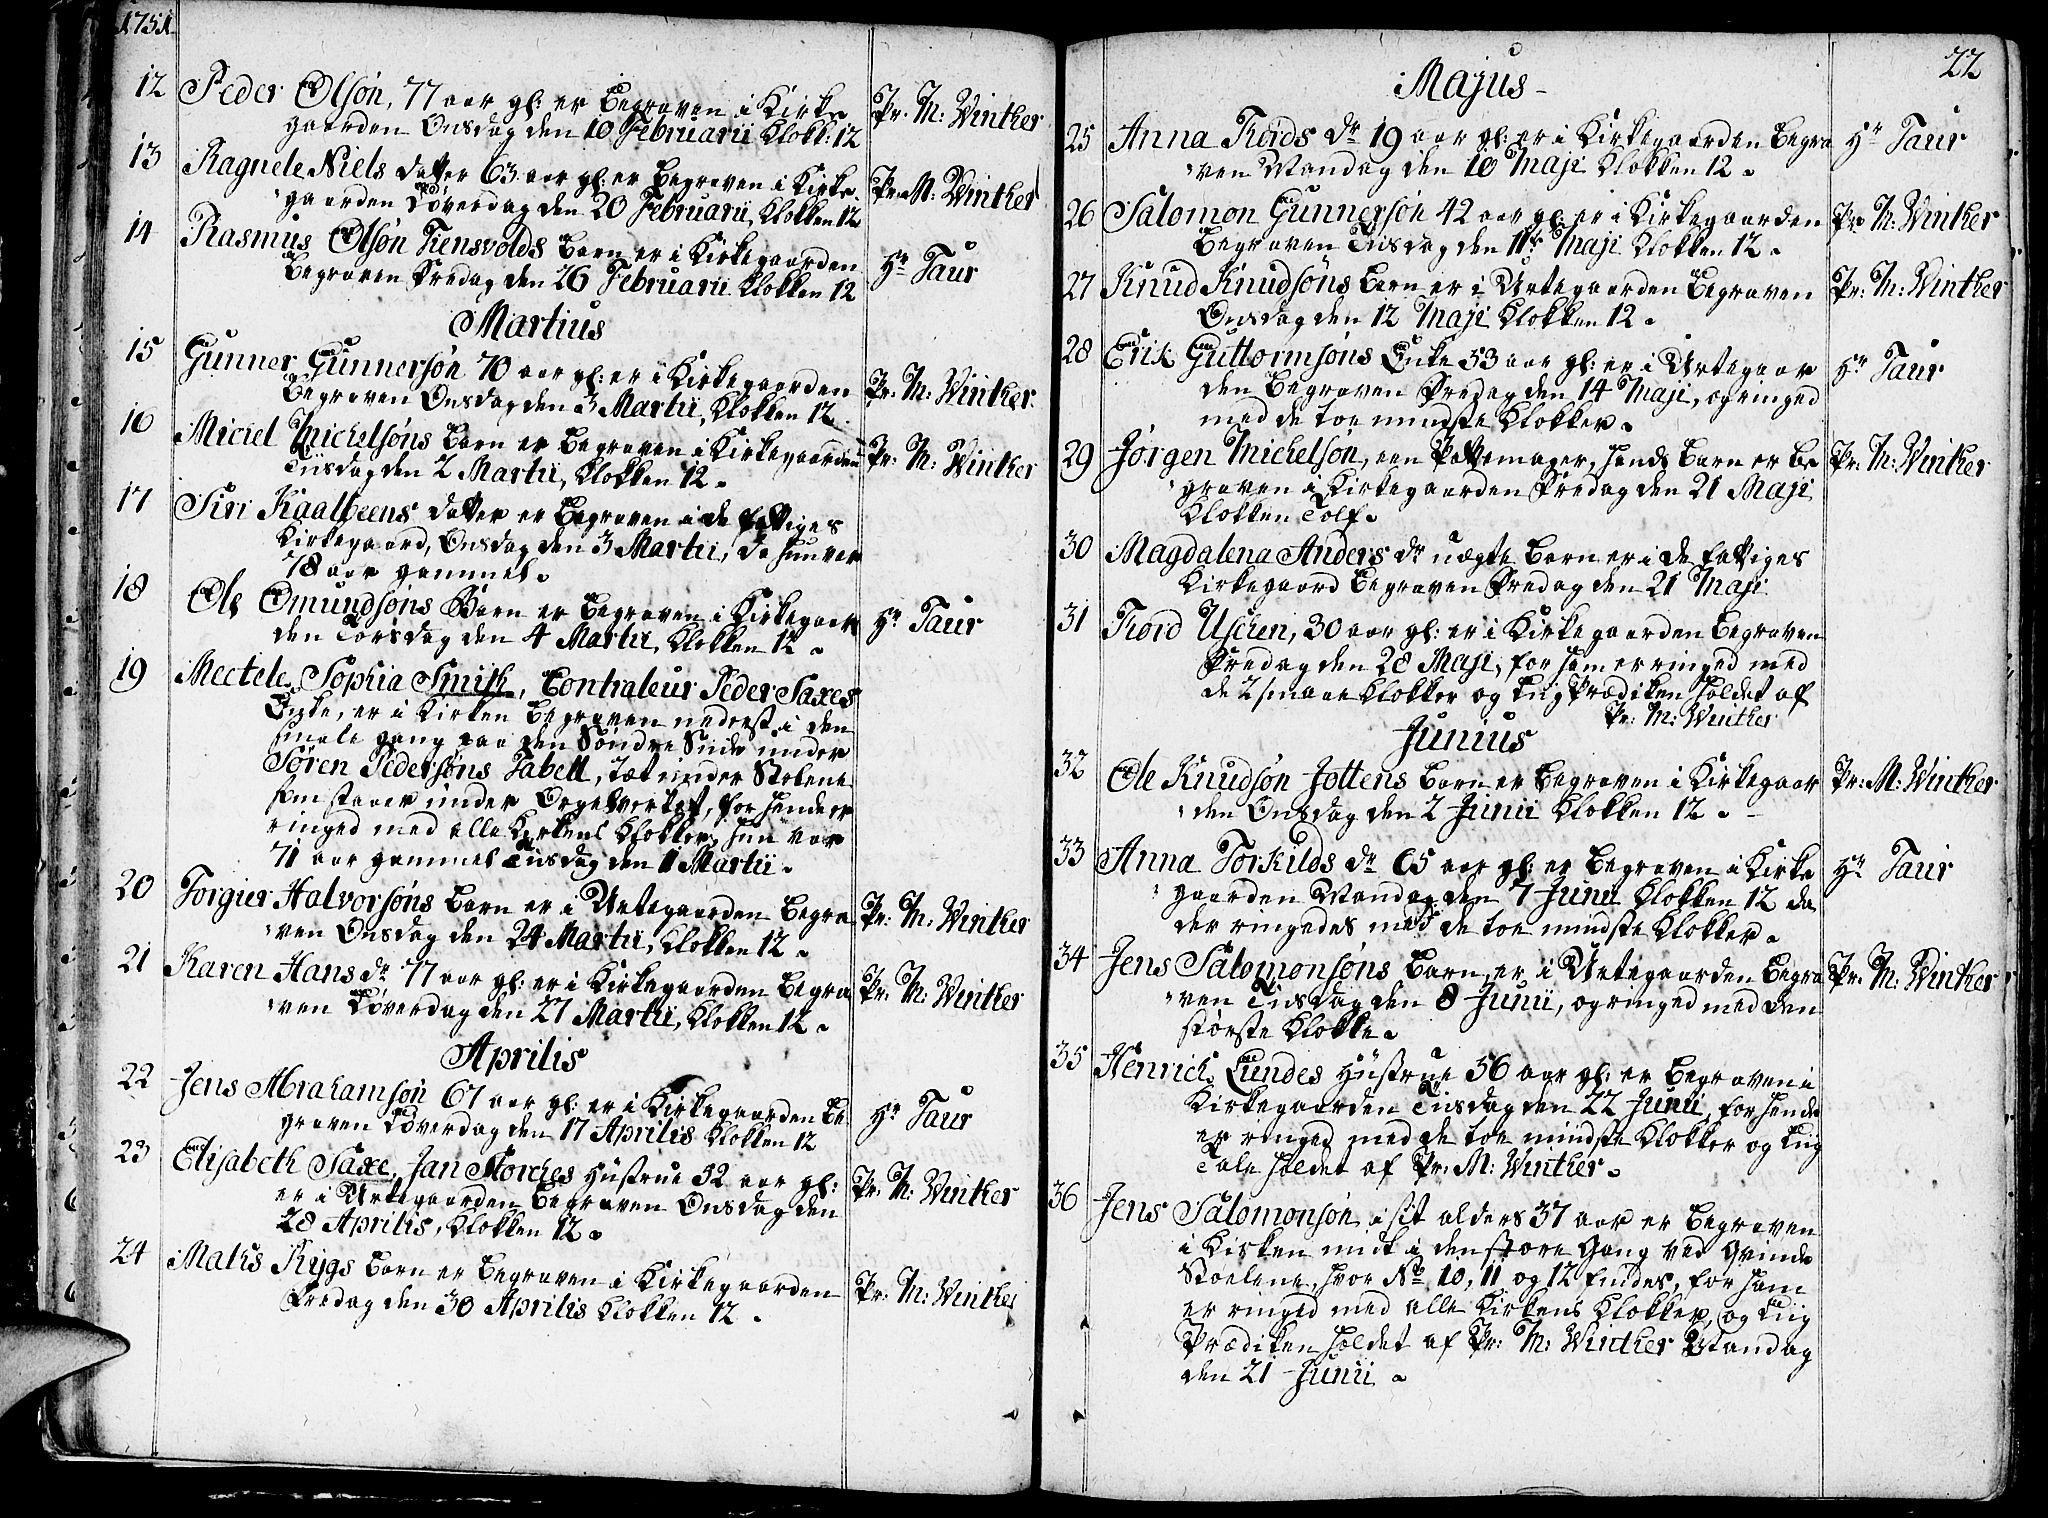 1751
12 Peder Olsön, 77 aar gl: er Begraven i Kirke
gaarden Onsdag den 10 Februarii Klokk: 12
Pr. M: Winther
13 Ragnele Niels datter 63 aar gl: er Begraven i Kirke
gaarden Löverdag den 20 Februarii, Klokken 12
Pr: M: Winther
14 Rasmus Olsön Tiensvolds Barn er i Kirkegaarden
Begraven Fredag den 26 Februarii Klokken 12
Hr Taur
Martius
15 Gunner Gunnersön 70 aar gl: er i Kirkegaarden
Begraven Onsdag den 3 Martii, Klokken 12
Pr: M: Winther
16 Miciel Michelsöns Barn er Begraven i Kirkegaarden
Tiisdag den 2 Martii, Klokken 12.
Pr: M: Winther
17 Siri Kaalbeens datter er Begraven i de fattiges
Kirkegaard, Onsdag den 3 Martii, da hun var
78 aar gammel.
18 Ole Omundsöns Barn er Begraven i Kirkegaar
den Torsdag den 4 Martii, Klokken 12.
Hr Taur
19 Mectele Sophia Smith, Contraleur Peder Saxes
Enke, er i Kirken Begraven nederst i den
smale gang paa den Söndre Side under
Sören Pedersöns Tabell, tæt under Stolene
som staaer under Orgelverket, for hende er
ringed med alle Kirkens Klokker, hun var
71 aar gammel Tiisdag den 1 Martii.
20 Torgier Halvorsöns Barn er i Urtegaarden Begra
ven Onsdag den 24 Martii, Klokken 12.
Pr: M: Winther
21 Karen Hans dr 77 aar gl: er i Kirkegaarden Begra
ven Löverdag den 27 Martii, Klokken 12.
Pr: M: Winther
Aprilis
22 Jens Abrahamsön 67 aar gl: er i Kirkegaarden Be
graven Löverdag den 17 Aprilis Klokken 12
Hr Taur
23 Elisabeth Saxe, Jan Storches Hustrue 52 aar gl:
er i Urtegaarden Begraven Onsdag den
28 Aprilis, Klokken 12.
Pr: M: Winther
24 Mathis Rygs Barn er Begraven i Kirkegaarden
Fredag den 30 Aprilis Klokken 12.
Pr: M: Winther
22
Majus
25 Anna Tords dr 19 aar gl: er i Kirkegaarden Begra
ven Mandag den 10 Maji Klokken 12.
Hr Taur
26 Salomon Gunnersön 42 aar gl: er i Kirkegaarden
Begraven Tiisdag den 11te Maji Klokken 12.
Pr. M: Winther
27 Knud Knudsöns Barn er i Urtegaarden Begraven
Onsdag den 12 Maji Klokken 12.
Pr: M: Winther
28 Erik Guttormsöns Enke 53 aar gl: er i Urtegaar
den Begraven Fredag den 14 Maji, og ringed
med de toe mindste Klokker.
Hr Taur
29 Jörgen Michelsön, een Pottemager, hands Barn er be
graven i Kirkegaarden Fredag den 21 Maji
Klokken Tolf.
Pr: M: Winther
30 Magdalena Anders dr uægte Barn er i de fattiges
Kirkegaard Begraven Fredag den 21 Maji
31 Tord Uschen, 30 aar gl: er i Kirkegaarden Begraven
Fredag den 28 Maji, for ham er ringed med
de 2 smaae Klokker og Liig Prædiken holdet af
Pr: M: Winther
Junius
32 Ole Knudsön Jottens Barn er Begraven i Kirkegaar
den Onsdag den 2 Junii Klokken 12.
Pr: M: Winther
33 Anna Torkilds dr 65 aar gl: er Begraven i Kirke
gaarden Mandag den 7 Junii Klokken 12 da
der ringedes med de toe mindste Klokker.
Hr Taur
34 Jens Salomonsöns Barn, er i Urtegaarden Begra
ven Tiisdag den 8 Junii, og ringed med den
störste Klokke.
Pr. M: Winther
35 Henrich Lundes Hustrue 56 aar gl: er Begraven i
Kirkegaarden Tiisdag den 22 Junii, for hende
er ringed med de toe mindste Klokker og Liig
Tale holdet af Pr: M: Winther.
36 Jens Salomonsön i sit alders 37 aar er Begraven
i Kirken midt i den store Gang ved Qvinde
Stoelene, hvor No 10, 11 og 12 findes, for ham
er ringed med alle Kirkens Klokker, og Liig
Prædiken holdet af Pr: M: Winther Mandag
den 21 Junii.